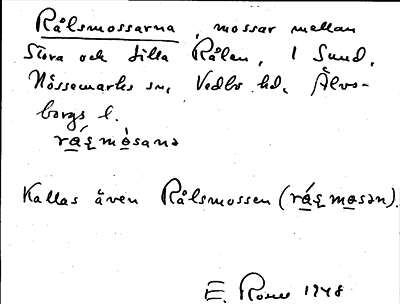 Rålsmossarna, mossar mellan
Stora och Lilla Rålen, i Sund,
Nössemarks sn, Vedbo hd, Älvs-
borgs l.
Kallas även Rålsmossen
E. 1948